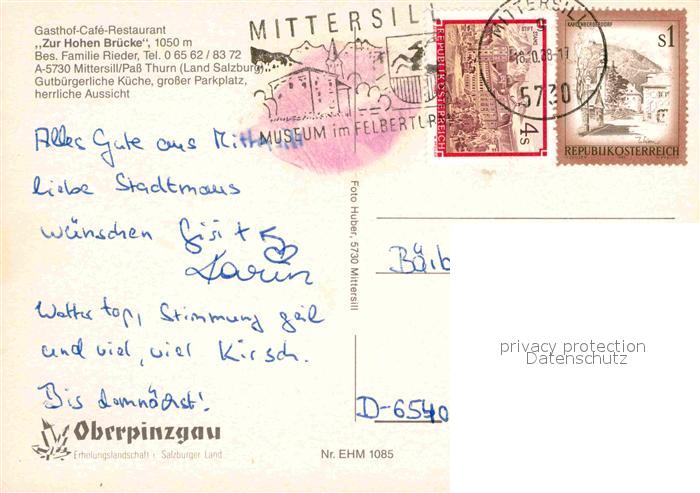 Gasthof-Café-Restaurant
„Zur Hohen Brücke", 1050 m
Bes. Familie Rieder, Tel. 0 65 62 / 83 72
A-5730 Mittersill/Paß Thurn (Land Salzburg)
Gutbürgerliche Küche, großer Parkplatz,
herrliche Aussicht
MITTERSILL
MUSEUM im FELBERTUR
REPUBLIK ÖSTERREICH
4s
MITTERSILL
5730
s1
REPUBLIK ÖSTERREICH
Alles Gute aus Mittersill
liebe Stadtmaus
wünschen Gisi +
Karin
Wetter top, Stimmung geil
und viel, viel Kirsch.
Bis demnächst!
Oberpinzgau
Erholungslandschaft i. Salzburger Land
Foto Huber, 5730 Mittersill
Nr. EHM 1085
Bärb
D-6540
privacy protection
Datenschutz